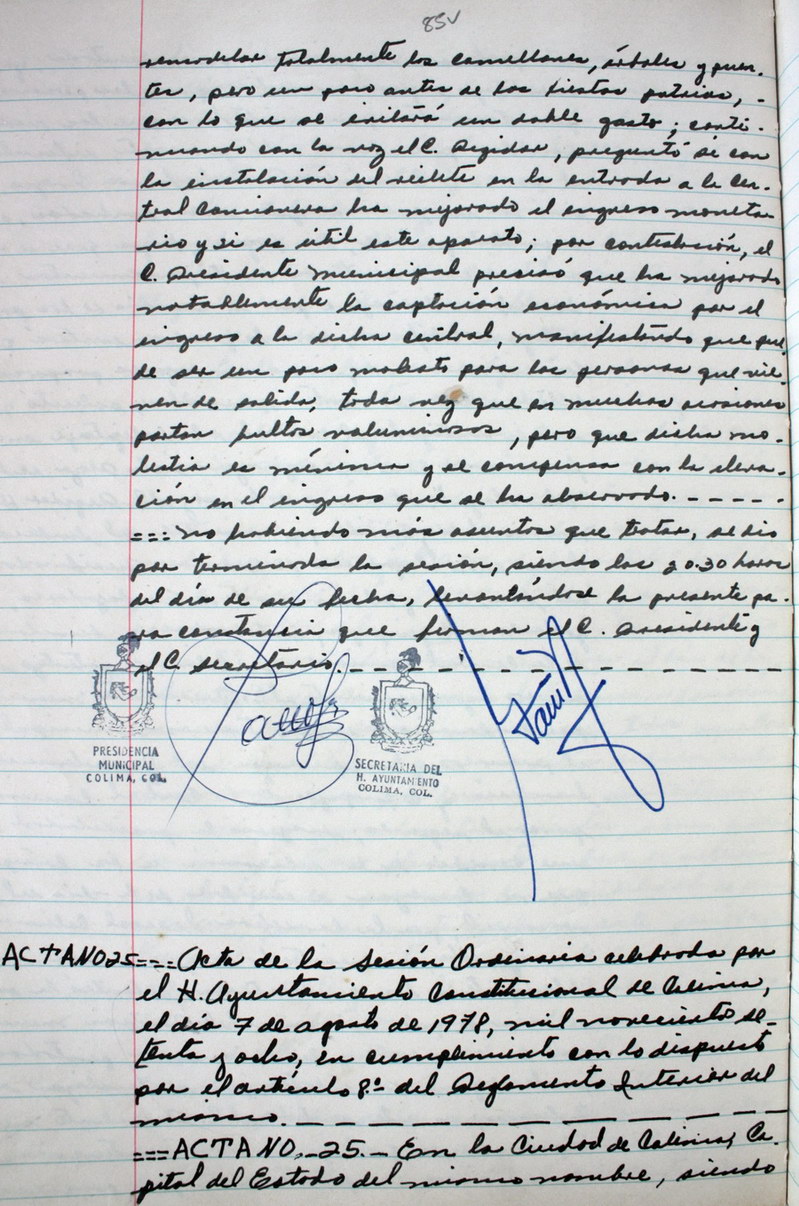 85v
remodelar totalmente los camellones, árboles y puen-
tes, pero un poco antes de las fiestas patrias, -
con lo que se evitará un doble gasto; conti-
nuando con la voz el C. Regidor, preguntó si con
la instalación del reilete en la entrada a la Cen-
tral Camionera ha mejorado el ingreso moneta
rio y si es útil este aparato; por contestación, el
C. Presidente Municipal precisó que ha mejorado
notablemente la captación económica por el
ingreso a la dicha central, manifestando que pue
de ser un poco molesto para las personas que vie-
nen de salida, toda vez que en muchas ocasiones
portan bultos voluminosos, pero que dicha mo-
lestia es mínima y se compensa con la eleva-
ción en el ingreso que se ha observado. - - - - -
=== No habiendo más asuntos que tratar, se dio
por terminada la sesión, siendo las 20.30 horas
del día de su fecha, levantándose la presente pa-
ra constancia que firman el C. Presidente y
el C. Secretario. - - - - - - - - - - - -
PRESIDENCIA
MUNICIPAL
COLIMA, COL.
SECRETARIA DEL
H. AYUNTAMIENTO
COLIMA, COL.
ACTA NO 25 === Acta de la Sesión Ordinaria celebrada por
el H. Ayuntamiento Constitucional de Colima,
el día 7 de agosto de 1978, mil novecientos se-
tenta y ocho, en cumplimiento con lo dispuesto
por el artículo 8º del Reglamento Interior del
mismo. - - - - - - - - - - - - -
=== ACTA NO. - 25. - En la Ciudad de Colima, Ca-
pital del Estado del mismo nombre, siendo